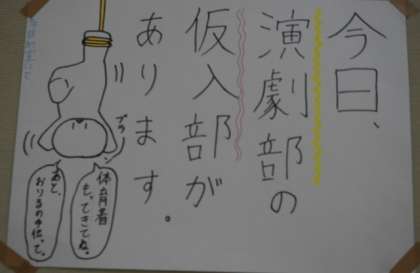 今日、
演劇部の
仮入部が
あります。
ブラ
ン
体育着
もってきてね。
あと、
おりるの手伝って。